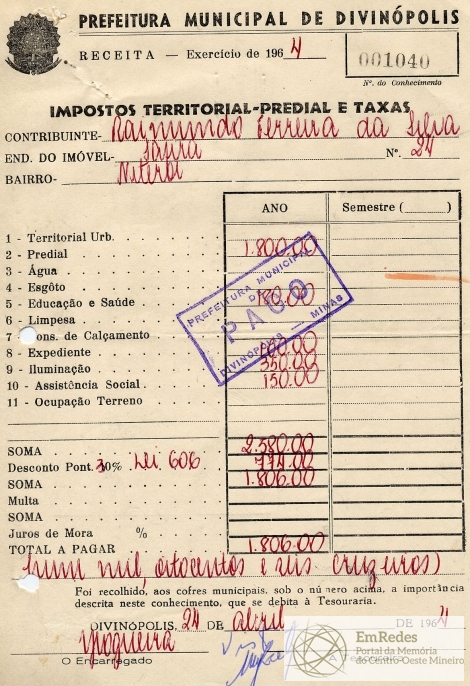 PREFEITURA MUNICIPAL DE DIVINÓPOLIS
RECEITA — Exercício de 1964
001040
Nº. do Conhecimento
IMPOSTOS TERRITORIAL-PREDIAL E TAXAS
CONTRIBUINTE- Raimundo Ferreira da Silva
END. DO IMÓVEL- Nº. 24
BAIRRO- Niteroi
ANO Semestre (____)
1 - Territorial Urb.
2 - Predial 1.800.00
3 - Água
4 - Esgôto
5 - Educação e Saúde 180.00
6 - Limpesa
7 - Cons. de Calçamento
8 - Expediente 100.00
9 - Iluminação 350.00
10 - Assistência Social 150.00
11 - Ocupação Terreno
PREFEITURA MUNICIPAL
DE
PAGO
DIVINÓPOLIS — MINAS
SOMA 2.580.00
Desconto Pont. 30% Lei 606 774.00
SOMA 1.806.00
Multa
SOMA
Juros de Mora %
TOTAL A PAGAR 1.806.00
(hum mil, oitocentos e seis cruzeiros)
Foi recolhido, aos cofres municipais, sob o número acima, a importância
descrita neste conhecimento, que se debita à Tesouraria.
DIVINÓPOLIS, 24 DE abril DE 1964
Nogueira
O Encarregado
EmRedes
Portal da Memória
do Centro-Oeste Mineiro